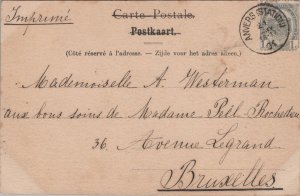 Imprimé
Carte Postale.
Postkaart.
(Côté réservé à l'adresse. — Zijde voor het adres alleen.)
ANVERS (STATION)
Mademoiselle A. Westerman
aux bons soins de Madame Pell
36, Avenue Legrand
Bruxelles